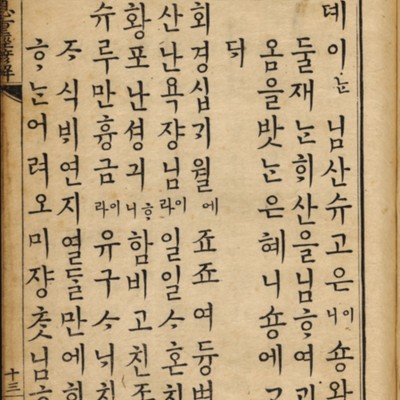 뎨이ᄂᆞᆫ님산슈고은이니숑와
둘재ᄂᆞᆫᄒᆡ산을님ᄒᆞ여괴
옴을밧ᄂᆞᆫ은혜니숑에
ᄃᆡ
회경십ᄀᆡ월에죠죠여듕
산난욕쟝님이라일일ᄉᆞ혼
황포난셩긔ᄒᆞ니함비고친
슈루만흉금이라유구ᄉᆞ넉
ᄌᆞ식ᄇᆡ연지열ᄃᆞᆯ만에
ᄒᆞᄂᆞᆫ어려오미쟝ᄎᆞᆺ님ᄒᆞ
十三